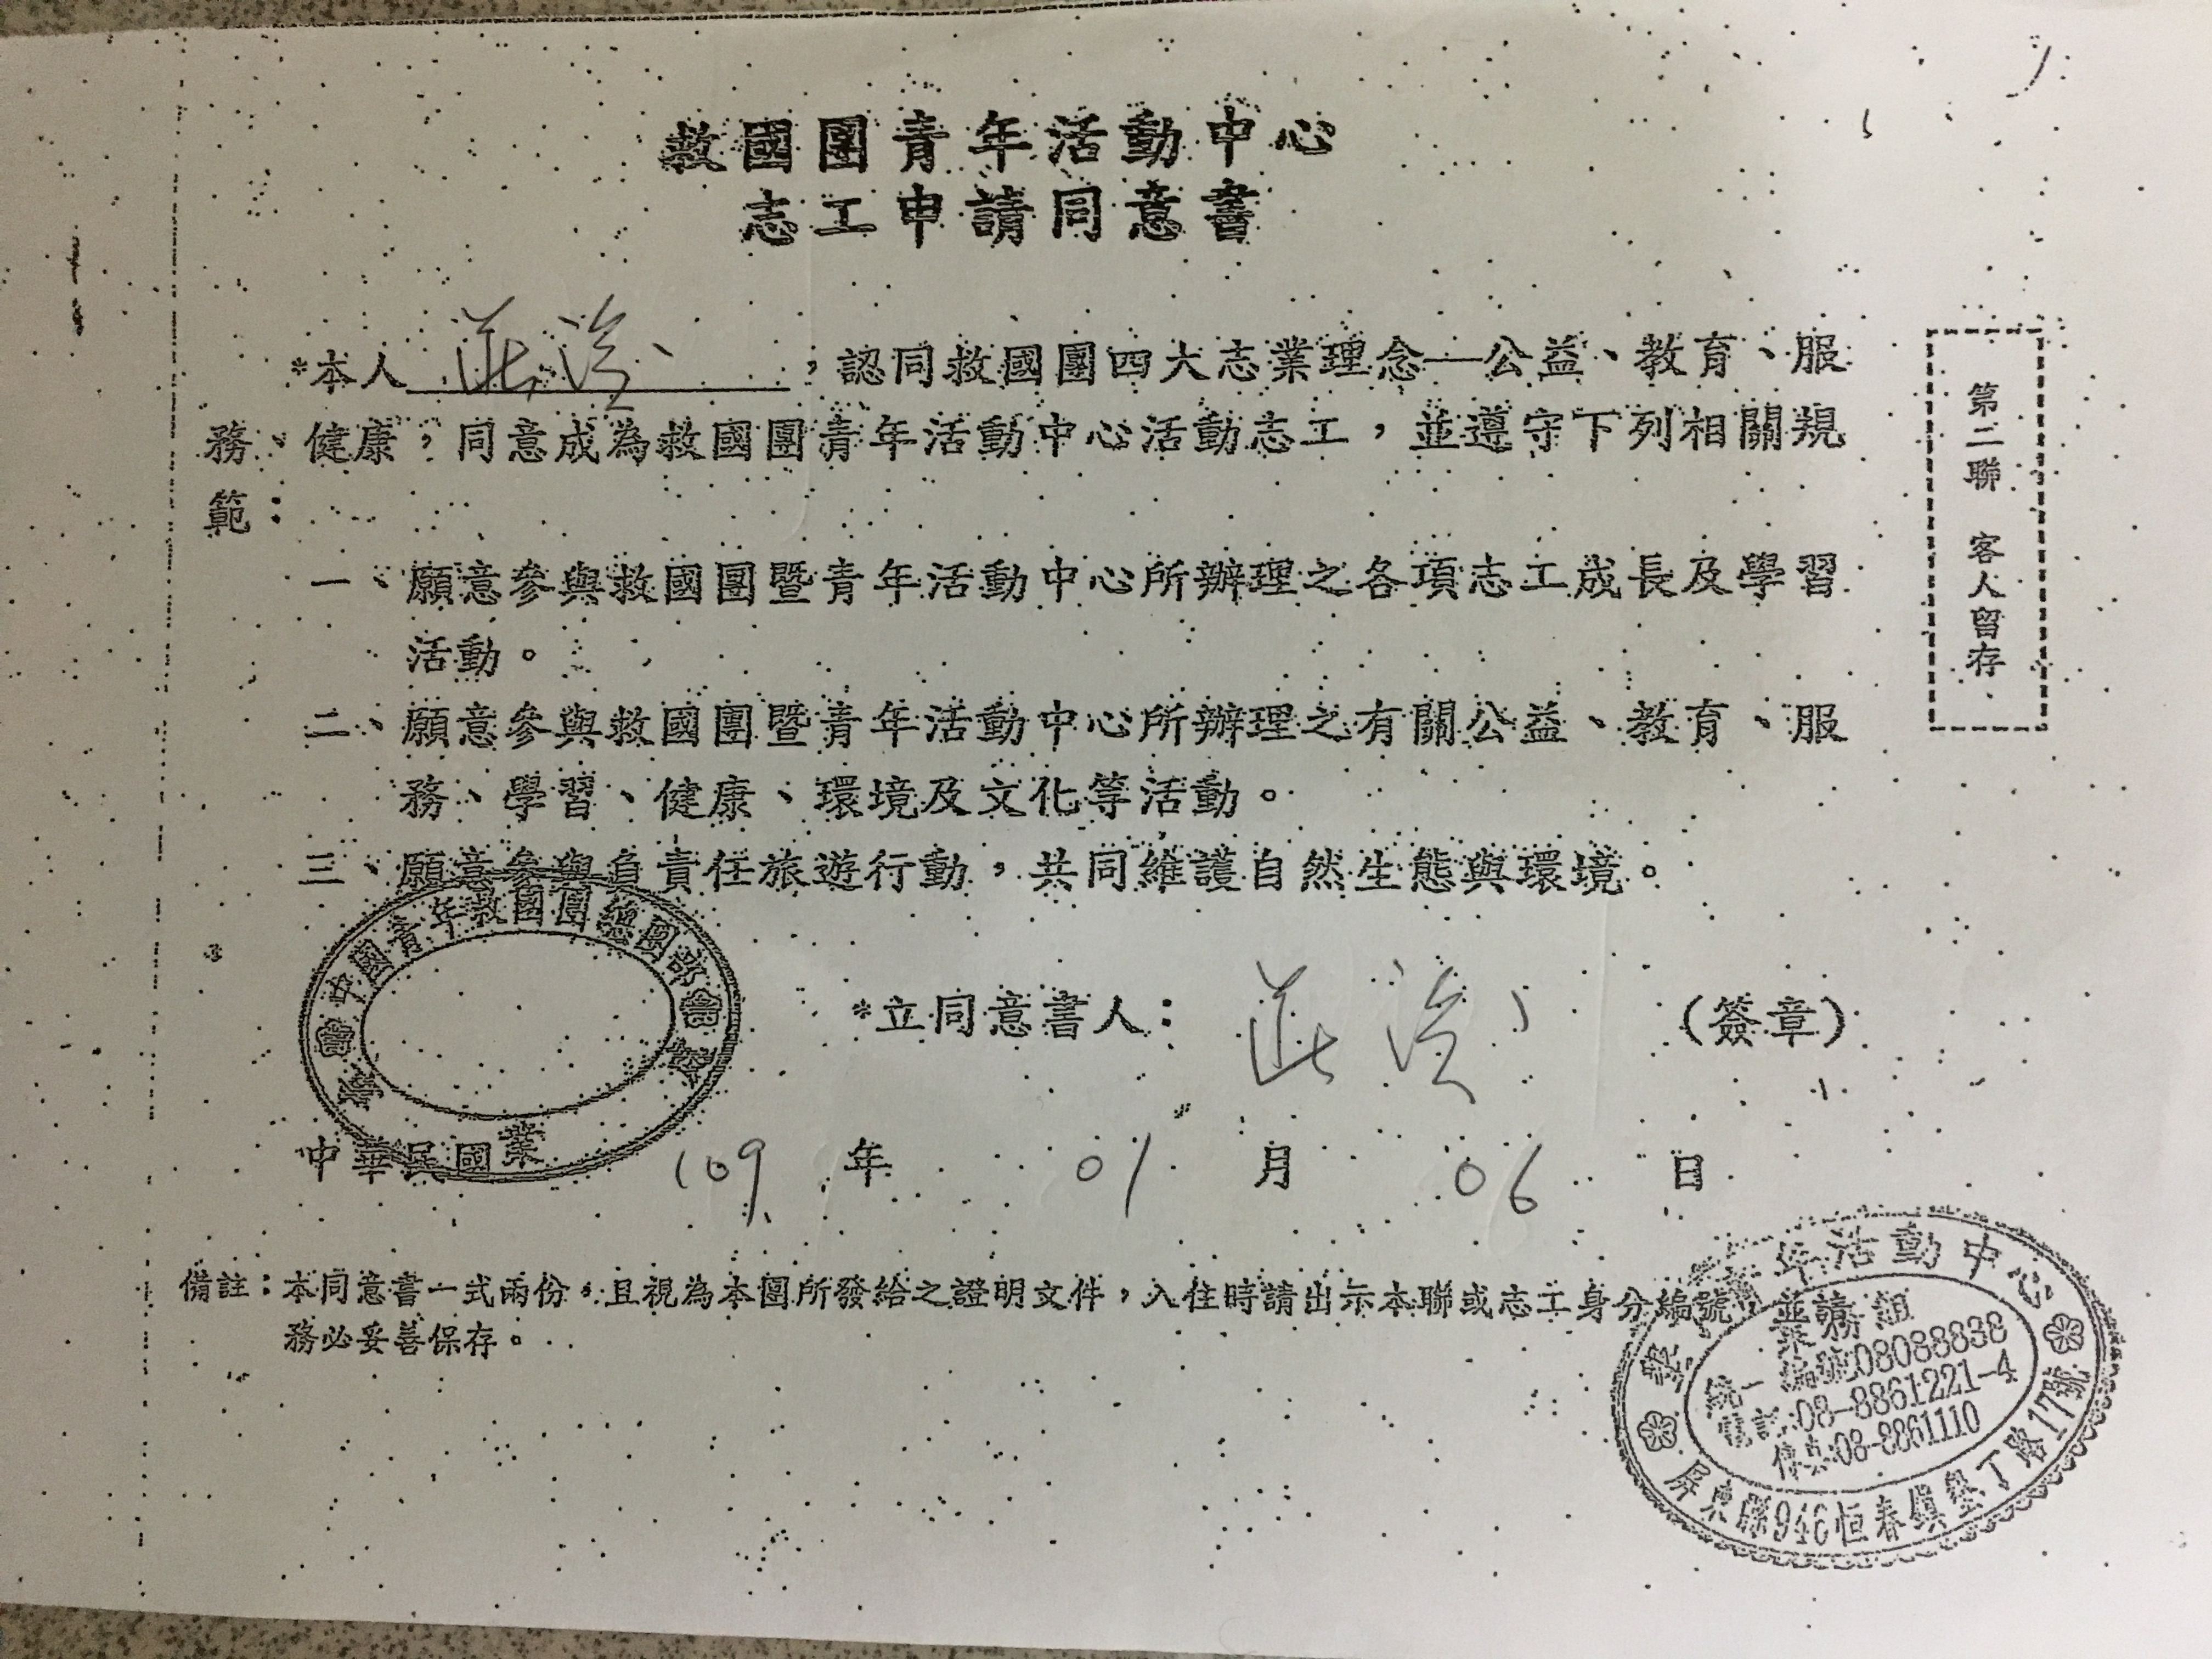 救國團青年活動中心
志工申請同意書
*本人　　　，認同救國團四大志業理念—公益、教育、服
務、健康，同意成為救國團青年活動中心活動志工，並遵守下列相關規
範：
一、願意參與救國團暨青年活動中心所辦理之各項志工成長及學習
活動。
二、願意參與救國團暨青年活動中心所辦理之有關公益、教育、服
務、學習、健康、環境及文化等活動。
三、願意參與負責任旅遊行動，共同維護自然生態與環境。
*立同意書人：　　　（簽章）
中華民國 109 年 01 月 06 日
備註：本同意書一式兩份，且視為本團所發給之證明文件，入住時請出示本聯或志工身分編號，並請
務必妥善保存。
第二聯 客人留存
中國青年救國團總團
年活動中心
統一編號:08088838
電話:08-8861221-4
傳真:08-8861110
屏東縣946恒春鎮墾丁路17號